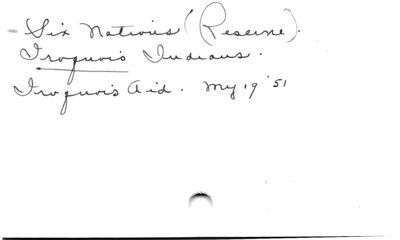 - Six Nations (Reserve).
Iroquois Indians.
Iroquois Aid. My 19 '51